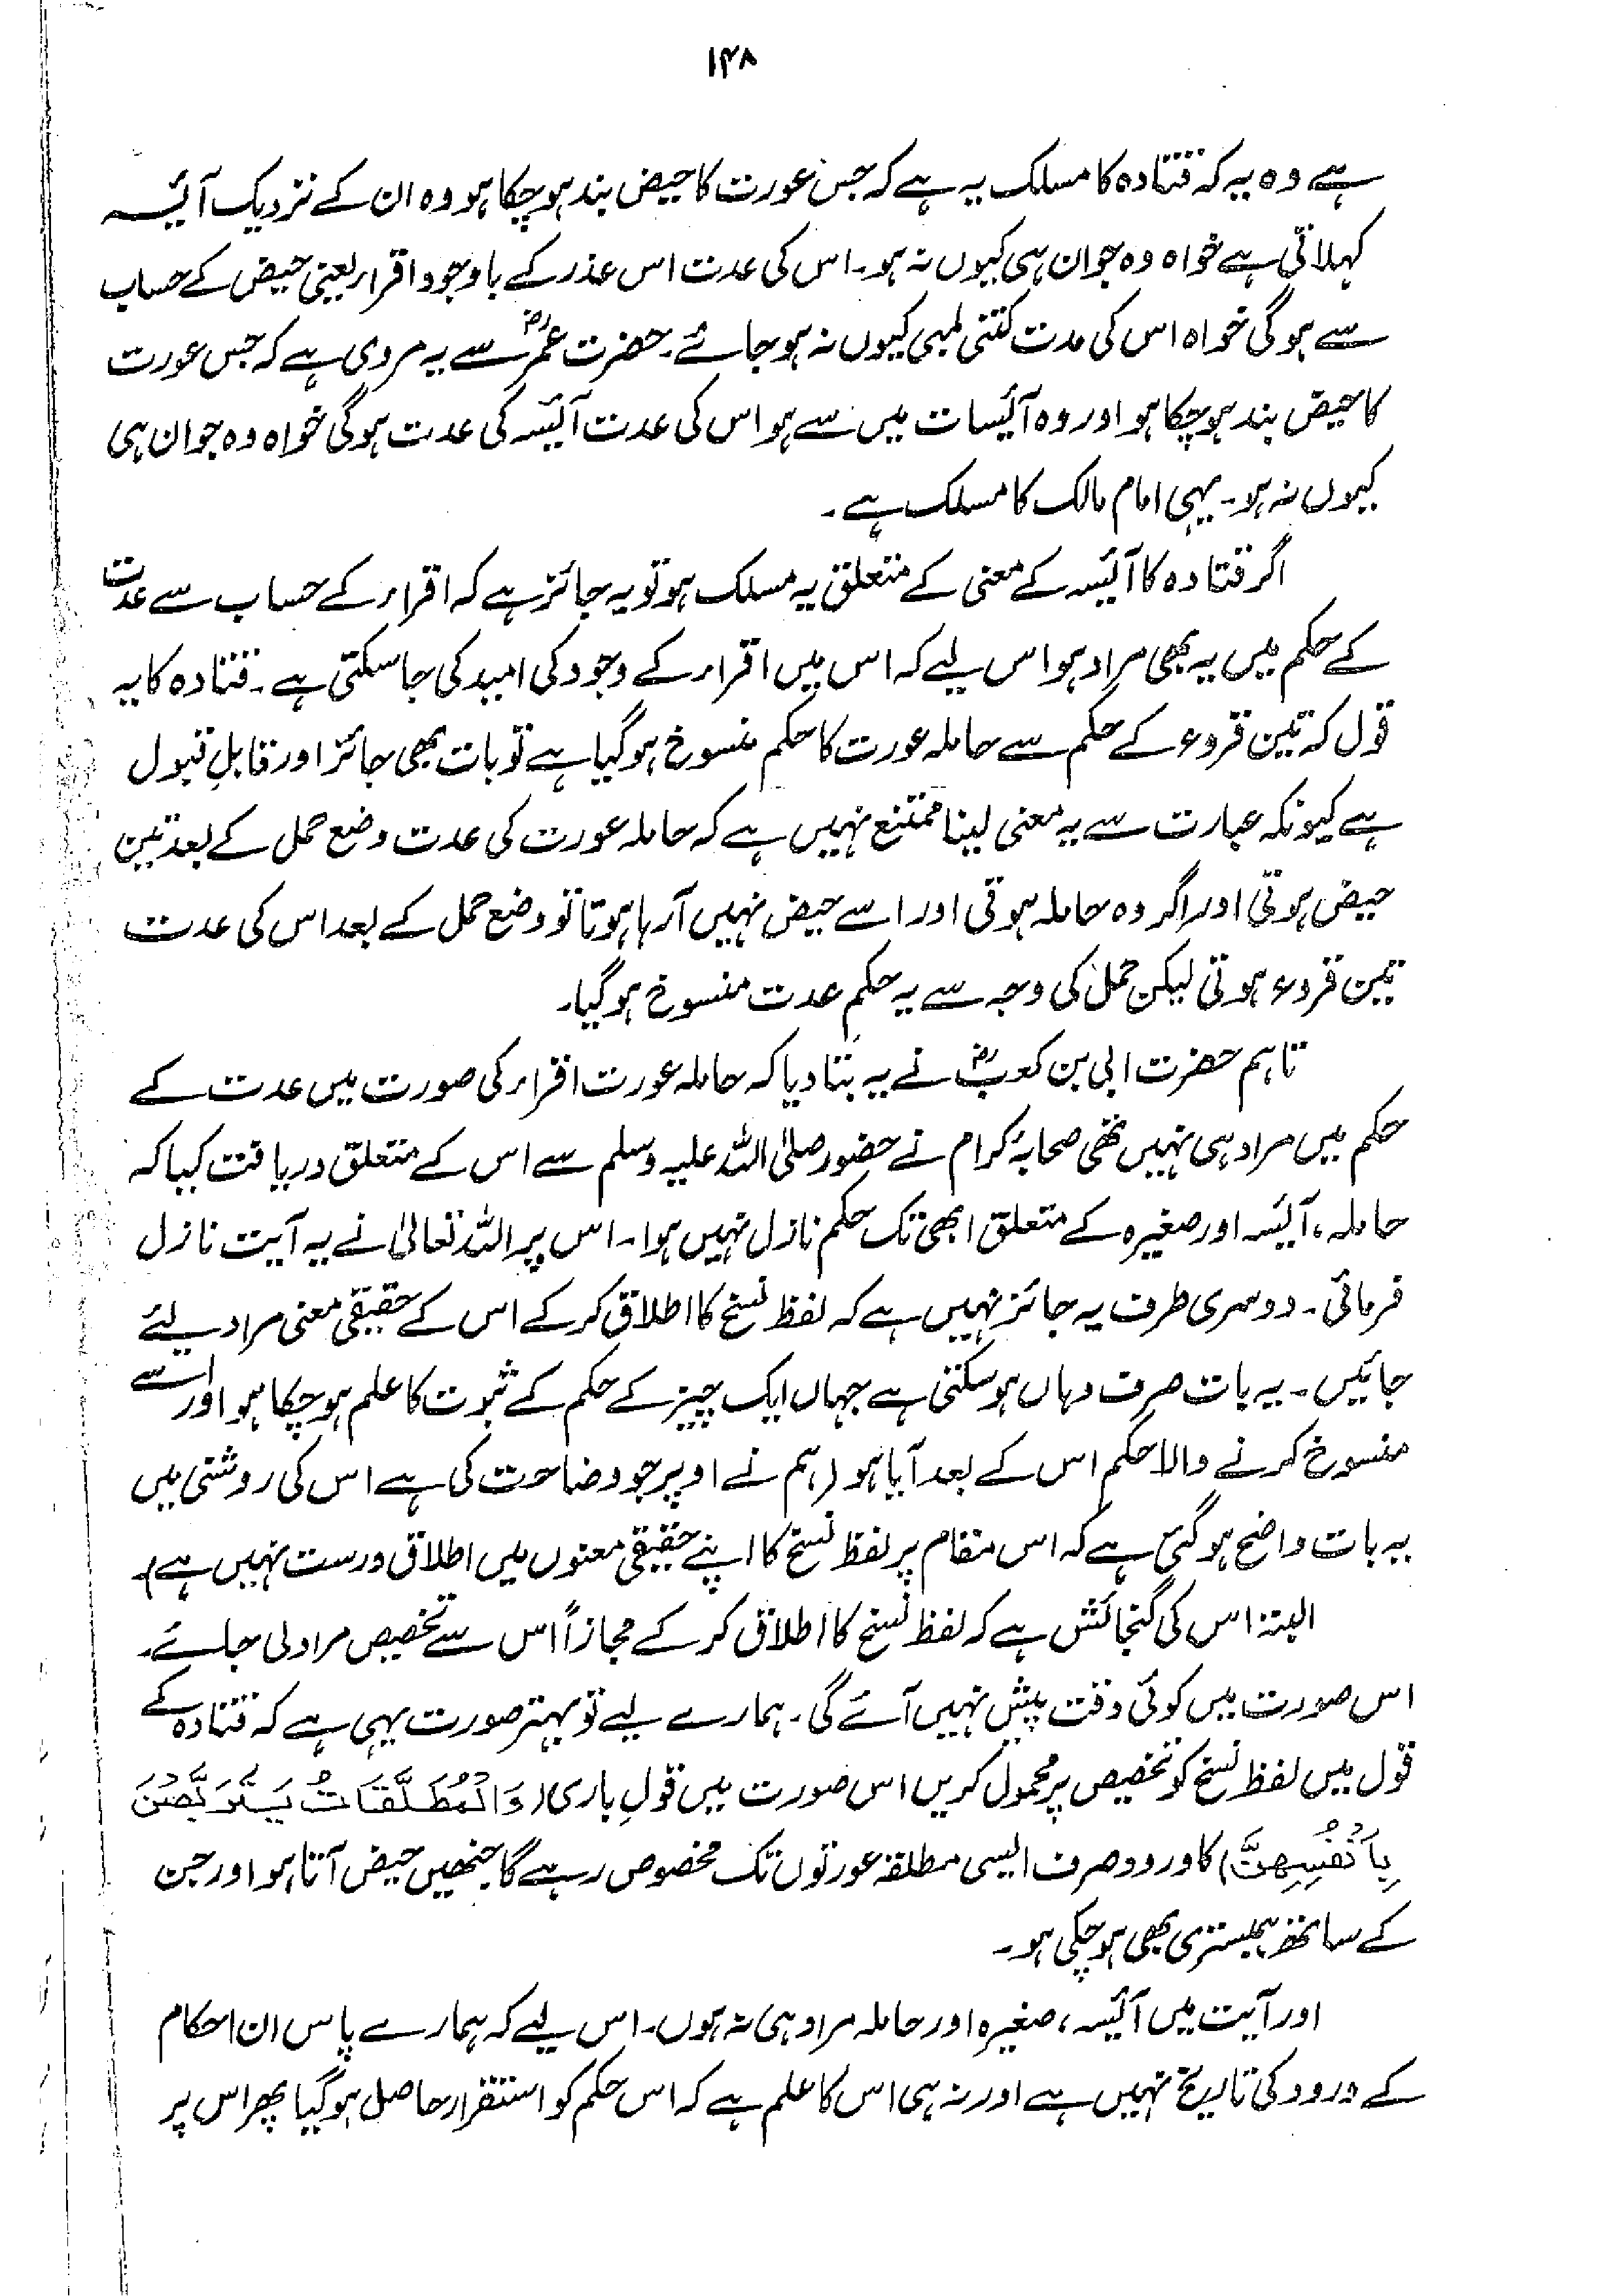 ۱۴۸
ہے وہ یہ کہ قتادہ کا مسلک یہ ہے کہ جس عورت کا حیض بند ہو چکا ہو وہ ان کے نزدیک آئیسہ
کہلاتی ہے خواہ وہ جوان ہی کیوں نہ ہو۔ اس کی عدت اس عذر کے باوجود اقراء یعنی حیض کے حساب
سے ہو گی خواہ اس کی مدت کتنی لمبی کیوں نہ ہو جائے۔ حضرت عمرؓ سے یہ مروی ہے کہ جس عورت
کا حیض بند ہو چکا ہو اور وہ آئیسات میں سے ہو اس کی عدت آئیسہ کی عدت ہو گی خواہ وہ جوان ہی
کیوں نہ ہو۔ یہی امام مالک کا مسلک ہے۔
اگر قتادہ کا آئیسہ کے معنی کے متعلق یہ مسلک ہو تو یہ جائز ہے کہ اقراء کے حساب سے عدت
کے حکم میں یہ بھی مراد ہو اس لیے کہ اس میں اقراء کے وجود کی امید کی جا سکتی ہے۔ قتادہ کا یہ
قول کہ تین قروء کے حکم سے حاملہ عورت کا حکم منسوخ ہو گیا ہے تو بات بھی جائز اور قابلِ قبول
ہے کیونکہ عبارت سے یہ معنی لینا ممتنع نہیں ہے کہ حاملہ عورت کی عدت وضع حمل کے بعد تین
حیض ہوتی اور اگر وہ حاملہ ہوتی اور اسے حیض نہیں آ رہا ہوتا تو وضع حمل کے بعد اس کی عدت
تین قروء ہوتی لیکن حمل کی وجہ سے یہ حکم عدت منسوخ ہو گیا۔
تاہم حضرت ابی بن کعبؓ نے یہ بتا دیا کہ حاملہ عورت اقراء کی صورت میں عدت کے
حکم میں مراد ہی نہیں تھی صحابۂ کرام نے حضور صلی اللہ علیہ وسلم سے اس کے متعلق دریافت کیا کہ
حاملہ، آئیسہ اور صغیرہ کے متعلق ابھی تک حکم نازل نہیں ہوا۔ اس پر اللہ تعالیٰ نے یہ آیت نازل
فرمائی۔ دوسری طرف یہ جائز نہیں ہے کہ لفظ نسخ کا اطلاق کر کے اس کے حقیقی معنی مراد لیئے
جائیں۔ یہ بات صرف وہاں ہو سکتی ہے جہاں ایک چیز کے حکم کے ثبوت کا علم ہو چکا ہو اور اسے
منسوخ کرنے والا حکم اس کے بعد آیا ہو (ہم نے اوپر جو وضاحت کی ہے اس کی روشنی میں
یہ بات واضح ہو گئی ہے کہ اس مقام پر لفظ نسخ کا اپنے حقیقی معنوں میں اطلاق درست نہیں ہے)۔
البتہ اس کی گنجائش ہے کہ لفظ نسخ کا اطلاق کر کے مجازاً اس سے تخصیص مراد لی جائے۔
اس صورت میں کوئی دقت پیش نہیں آئے گی۔ ہمارے لیے تو بہتر صورت یہی ہے کہ قتادہ کے
قول میں لفظ نسخ کو تخصیص پر محمول کریں اس صورت میں قولِ باری (وَالْمُطَلَّقَاتُ یَتَرَبَّصْنَ
بِاَنْفُسِھِنَّ) کا ورود صرف ایسی مطلقہ عورتوں تک مخصوص رہے گا جنھیں حیض آتا ہو اور جن
کے ساتھ ہمبستری بھی ہو چکی ہو۔
اور آیت میں آئیسہ، صغیرہ اور حاملہ مراد ہی نہ ہوں۔ اس لیے کہ ہمارے پاس ان احکام
کے ورود کی تاریخ نہیں ہے اور نہ ہی اس کا علم ہے کہ اس حکم کو استقرار حاصل ہو گیا پھر اس پر